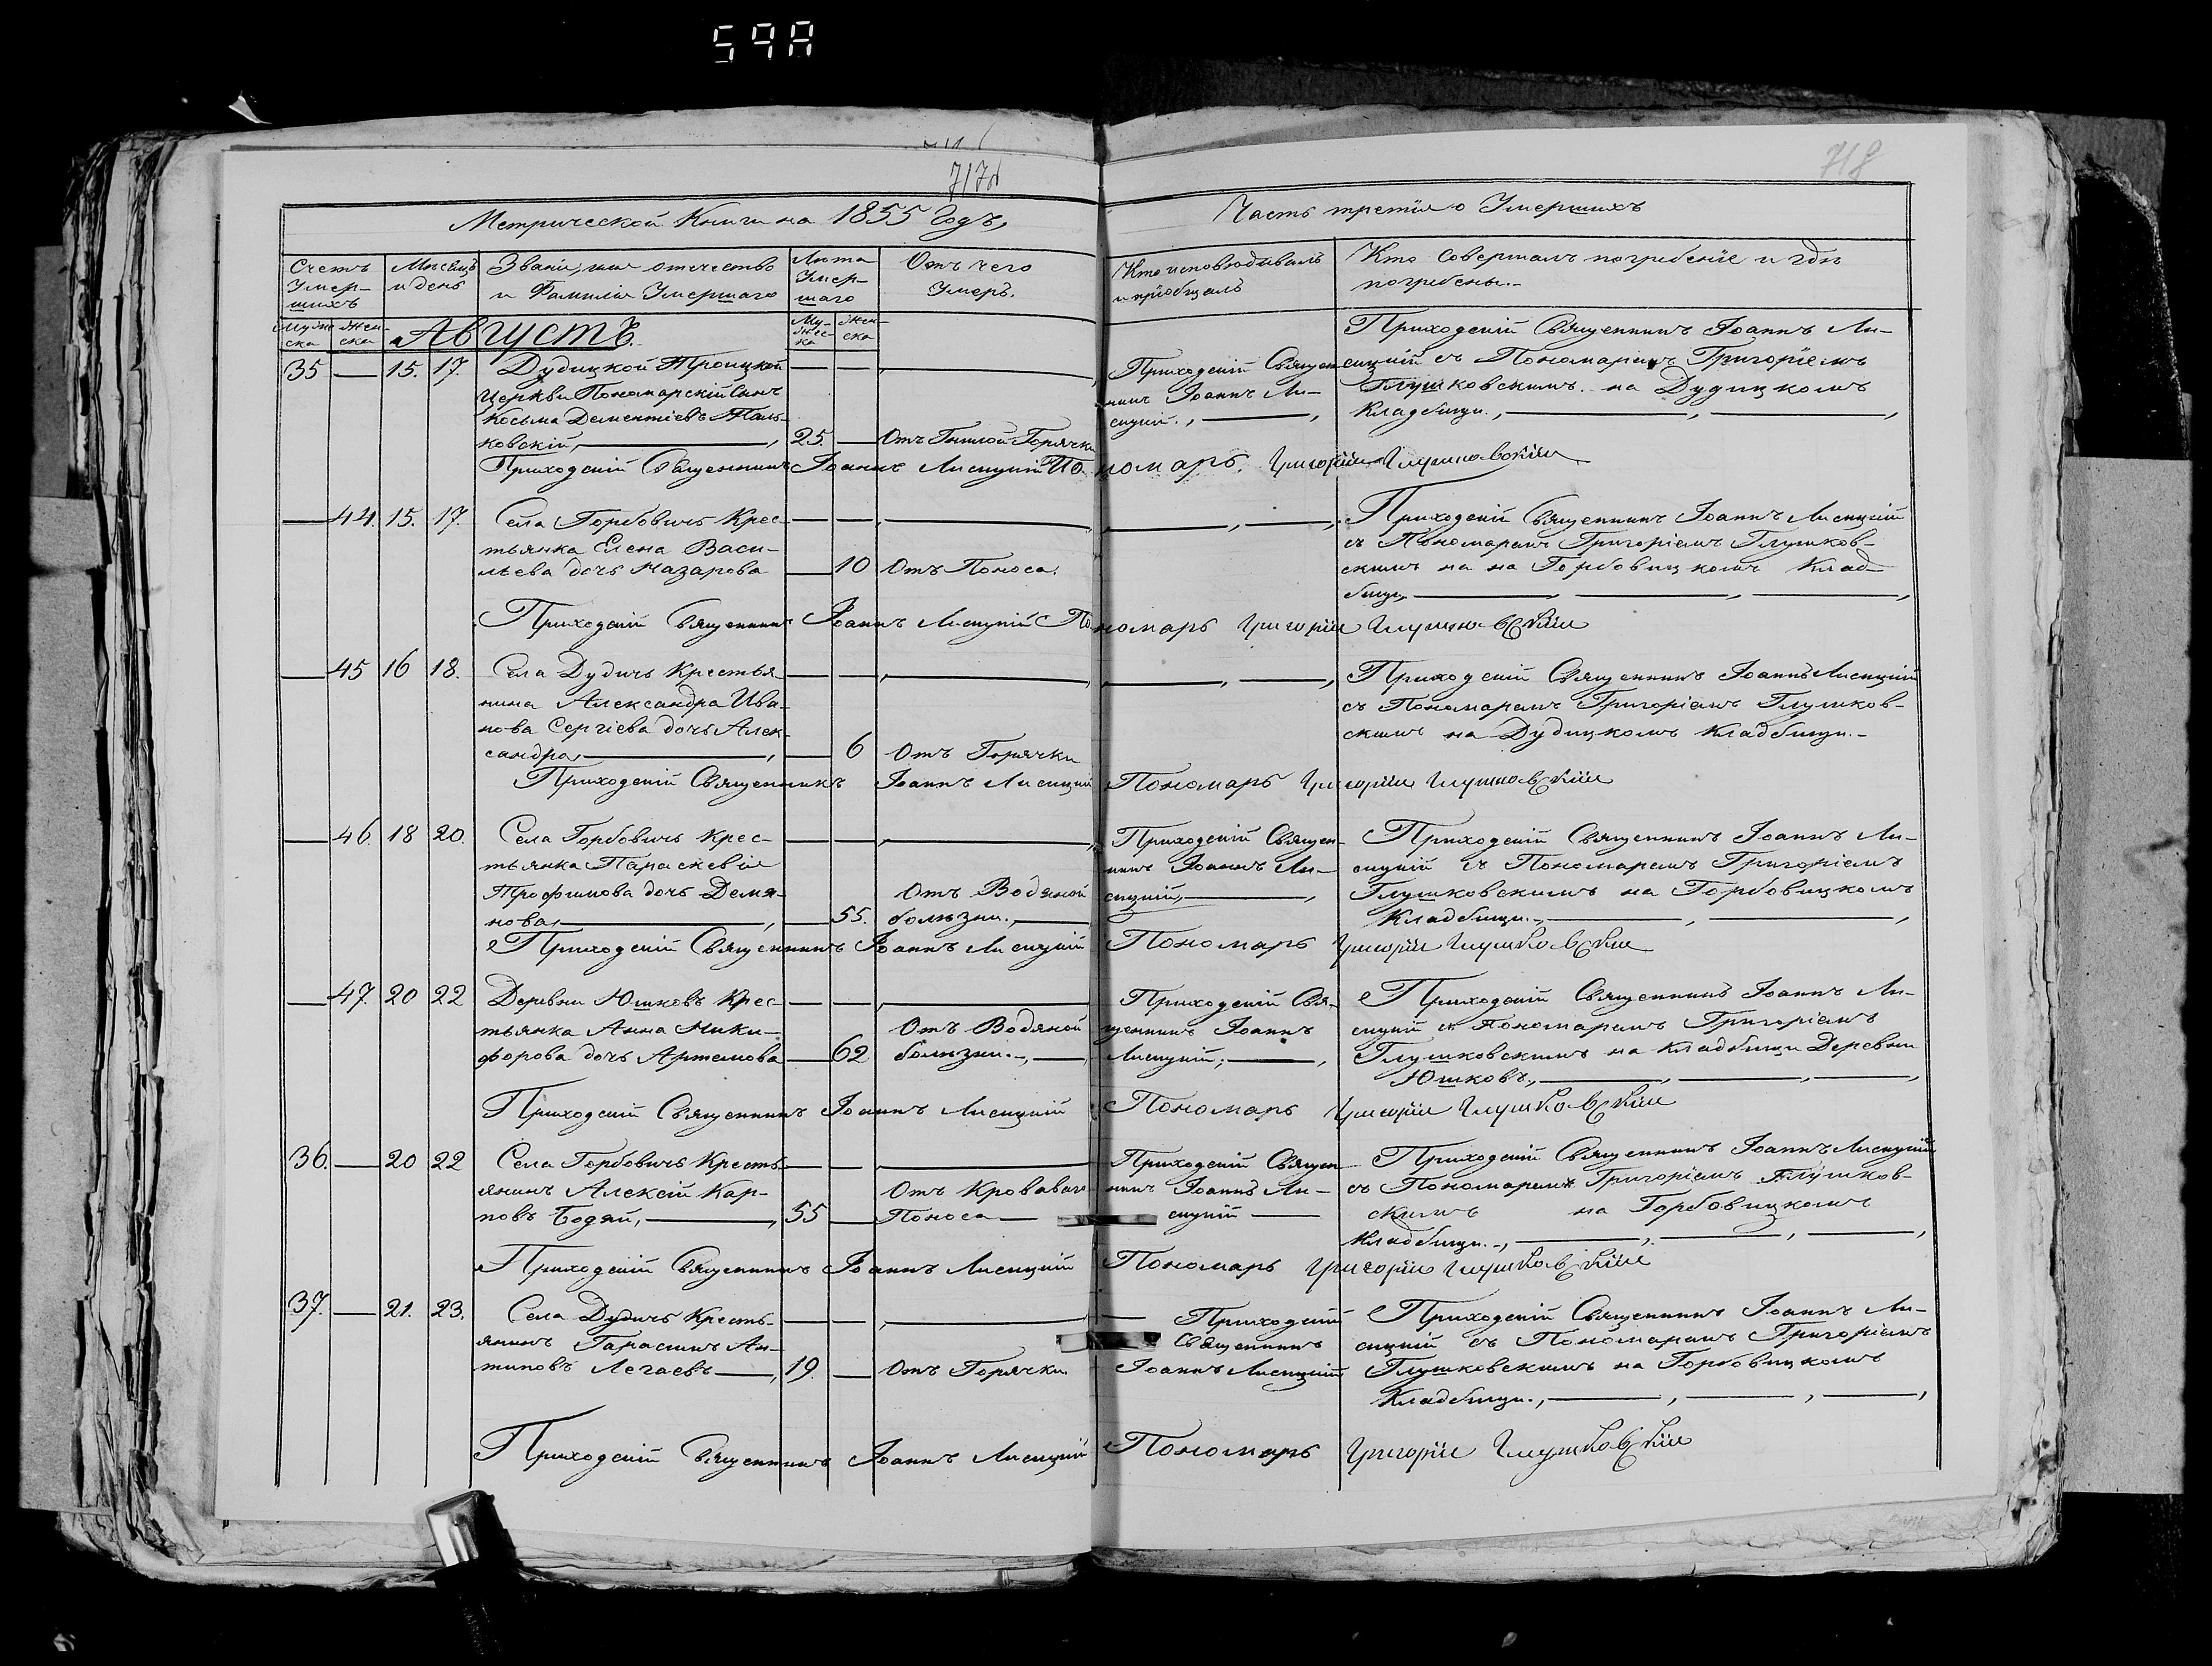 59A
717
718
Метрической Книги на 1855 Годъ,
Часть третія о Умершихъ
Счетъ Умер-шихъ
Мѣсяцъ и день
Званіе, имя отечество и Фамилія Умершаго
Лѣта Умер-шаго
Отъ чего Умеръ.
Кто исповѣдывалъ и пріобщалъ
Кто Совершалъ погребеніе и гдѣ погребены.-
Муже-ска
Жен-ска
Августъ.
Му-жес-ка
Жен-ска
35 — 15. 17. Дудицкой Троицкой
Церкви Пономарскій Сынъ
Косьма Дементіевъ
ковскій, 25. — Отъ Гнилой Горячки
Приходскій Священ-
никъ Іоаннъ Ли-
сицкій.,
Приходскій Священникъ Іоаннъ Ли-
сицкій съ Пономаремъ Григоріемъ
Глушковскимъ на Дудицкомъ
Кладбищи.,
Приходскій Священникъ Іоаннъ Лисицкій Пономарь. Григорій Глушковскій
— 44. 15. 17. Села Горбовичъ Крес-
тьянка Елена Васи-
льева дочь Назарова — 10 Отъ Поноса.
Приходскій Священникъ Іоаннъ Лисицкій
съ Пономаремъ Григоріемъ Глушков-
скимъ на на Горбовицкомъ Клад-
бищи,
Приходскій Священникъ Іоаннъ Лисицкій Пономарь Григорій Глушковскій
— 45 16 18. Села Дудичь Крестья-
нина Александра Ива-
нова Сергіева дочь Алек-
сандра, — 6 Отъ Горячки
Приходскій Священникъ Іоаннъ Лисицкій
съ Пономаремъ Григоріемъ Глушков-
скимъ на Дудицкомъ Кладбищи.-
Приходскій Священникъ Іоаннъ Лисицкій Пономарь Григорій Глушковскій
— 46. 18 20. Села Горбовичъ Крес-
тьянка Параскевія
Трофимова дочь Демя-
нова, — 55. Отъ Водяной
болѣзни.,
Приходскій Священ-
никъ Іоаннъ Ли-
сицкій,
Приходскій Священникъ Іоаннъ Ли-
сицкій съ Пономаремъ Григоріемъ
Глушковскимъ на Горбовицкомъ
Кладбищи.,
Приходскій Священникъ Іоаннъ Лисицкій Пономарь Григорій Глушковскій
— 47. 20 22 Деревни Юшковъ Крес-
тьянка Анна Ники-
форова дочь Артемова — 62 Отъ Водяной
болѣзни.-,
Приходскій Свя-
щенникъ Іоаннъ
Лисицкій;
Приходскій Священникъ Іоаннъ Ли-
сицкій съ Пономаремъ Григоріемъ
Глушковскимъ на Кладбищи Деревни
Юшковъ.,
Приходскій Священникъ Іоаннъ Лисицкій Пономарь Григорій Глушковскій
36. — 20 22 Села Горбовичъ Кресть-
янинъ Алексій Кар-
повъ Бодяй, 55 — Отъ Кроваваго
Поноса
Приходскій Священ-
никъ Іоаннъ Ли-
сицкій
Приходскій Священникъ Іоаннъ Лисицкій
съ Пономаремъ Григоріемъ Глушков-
скимъ на Горбовицкомъ
Кладбищи.-,
Приходскій Священникъ Іоаннъ Лисицкій Пономарь Григорій Глушковскій
37. — 21. 23. Села Дудичь Кресть-
янинъ Гарасимъ Ан-
типовъ Легаевъ, 19. — Отъ Горячки.
Приходскій
Священникъ
Іоаннъ Лисицкій
Приходскій Священникъ Іоаннъ Ли-
сицкій съ Пономаремъ Григоріемъ
Глушковскимъ на Горбовицкомъ
Кладбищи.,
Приходскій Священникъ Іоаннъ Лисицкій Пономарь Григорій Глушковскій